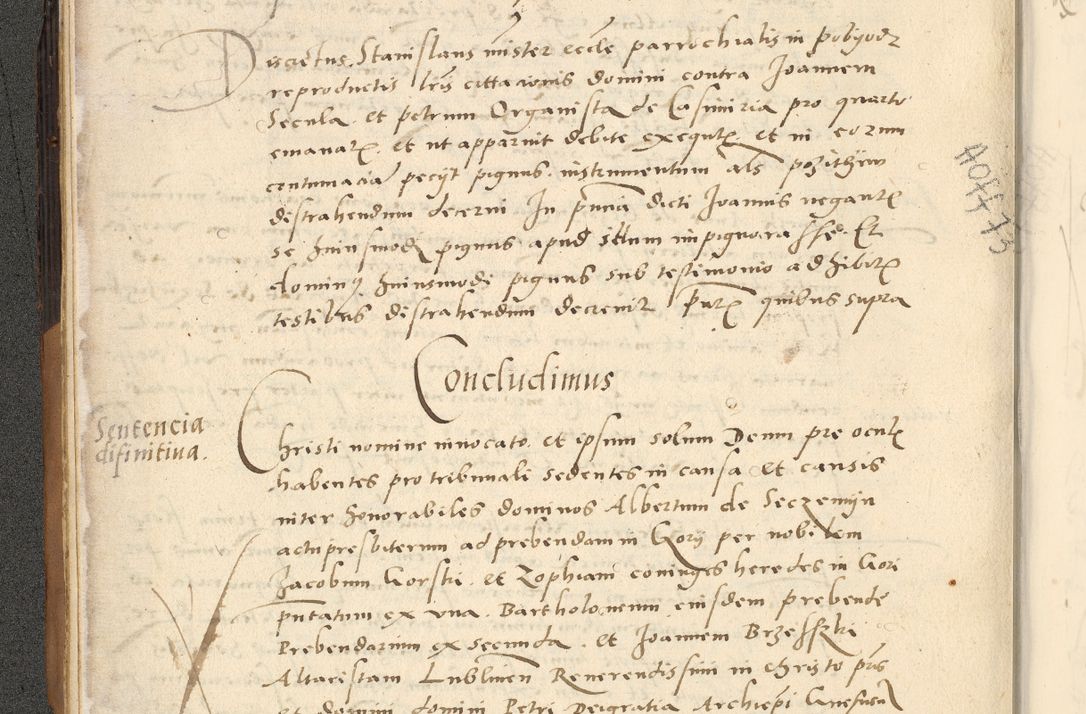 Discretus Stanislaus mister eccle parrochialis in pobyodz
reproductis lris cittacionis domini contra Joannem
Secula et petrum Organista de Casimiria pro quarto
emanat. et ut apparuit debite exequt. et in eorum
contumacia peciit pignus instrumentum als pozithiw
distrahendum decerni In pncia dicti Joannis negant
se huiusmodi pignus apud illum impignorasse Et
dominus huiusmodi pignus sub testimonio adhibit
testibus distrahendum decrevit pnt quibus supra
Concludimus
Sentencia
difinitiva.
Christi nomine invocato et ipsum solum Deum pre ocul
habentes pro tribunali sedentes in causa et causis
inter honorabiles dominos Albertum de Seczemijn
actu presbiterum ad prebendam in Gorij per nobilem
Jacobum Gorski et Zophiam coniuges heredes in Gori
pntatum ex una Bartholomeum eiusdem prebende
Prebendarium ex secunda et Joannem Brzesski
Altaristam Lublinen Reverendissimi in christo pris
et domini domini Petri Dei gratia Archiepi Gnesnen